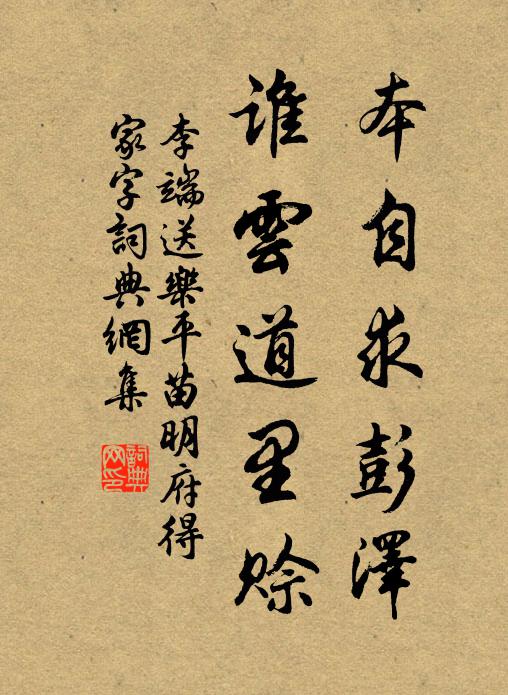 本自求彭澤
誰雲道里賒
李端送樂平苗明府得
家字詞典網集
詞典
网印